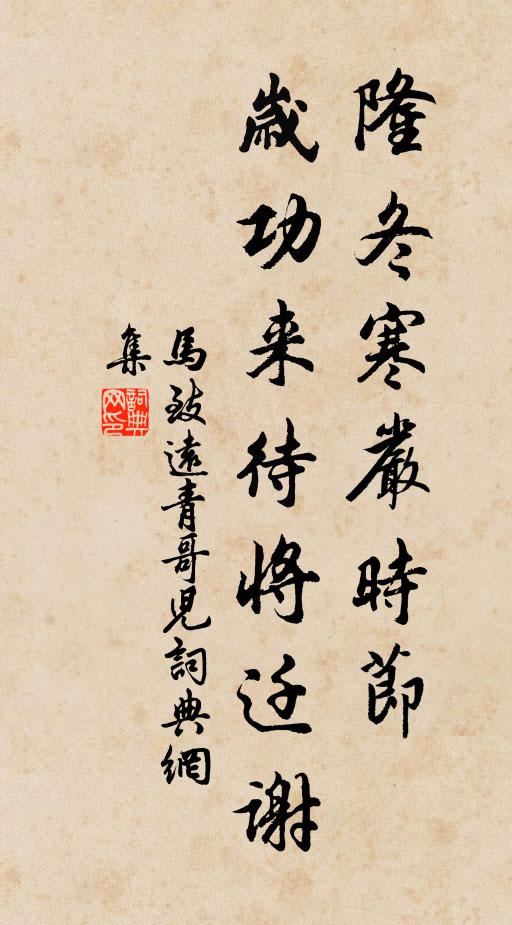 隆冬寒嚴時節
歲功来待將迁謝
馬致遠青哥兒詞典網
集
詞典
网印